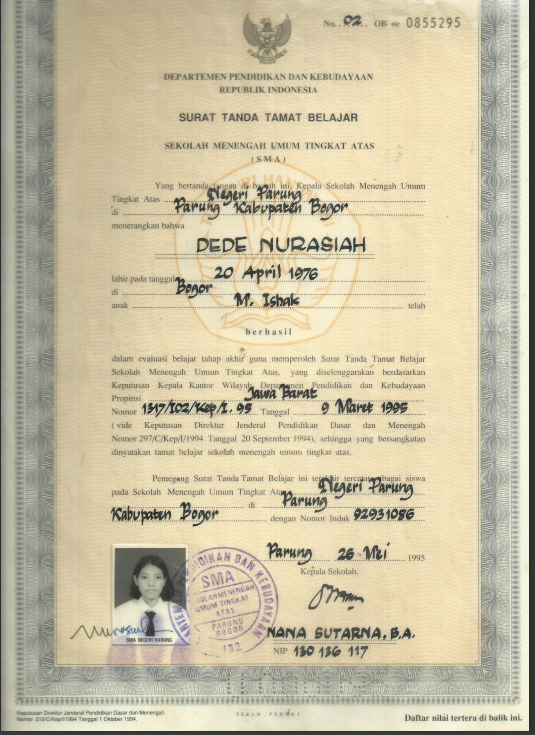 No. 02 OB oe 0855295
DEPARTEMEN PENDIDIKAN DAN KEBUDAYAAN
REPUBLIK INDONESIA
SURAT TANDA TAMAT BELAJAR
SEKOLAH MENENGAH UMUM TINGKAT ATAS
( SMA )
Yang bertanda tangan di bawah ini, Kepala Sekolah Menengah Umum
Tingkat Atas Negeri Parung
di Parung Kabupaten Bogor
menerangkan bahwa
DEDE NURASIAH
lahir pada tanggal 20 April 1976
di Bogor
anak M. Ishak telah
berhasil
dalam evaluasi belajar tahap akhir guna memperoleh Surat Tanda Tamat Belajar
Sekolah Menengah Umum Tingkat Atas, yang diselenggarakan berdasarkan
Keputusan Kepala Kantor Wilayah Departemen Pendidikan dan Kebudayaan
Propinsi Jawa Barat
Nomor 1317/I02/Kep/I. 95 Tanggal 9 Maret 1995
( vide Keputusan Direktur Jenderal Pendidikan Dasar dan Menengah
Nomor 297/C/Kep/I/1994 Tanggal 20 September 1994), sehingga yang bersangkutan
dinyatakan tamat belajar sekolah menengah umum tingkat atas.
Pemegang Surat Tanda Tamat Belajar ini terakhir tercatat sebagai siswa
pada Sekolah Menengah Umum Tingkat Atas Negeri Parung
di Parung
Kabupaten Bogor dengan Nomor Induk 92931086
Parung 26 Mei 1995
Kepala Sekolah,
SMA
SEKOLAH MENENGAH
UMUM TINGKAT
ATAS
PARUNG
BOGOR
132
SMA NEGERI PARUNG
NANA SUTARNA, B.A.
NIP 130 136 117
Keputusan Direktur Jenderal Pendidikan Dasar dan Menengah
Nomor 310/C/Kep/I/1994 Tanggal 1 Oktober 1994.
Daftar nilai tertera di balik ini.